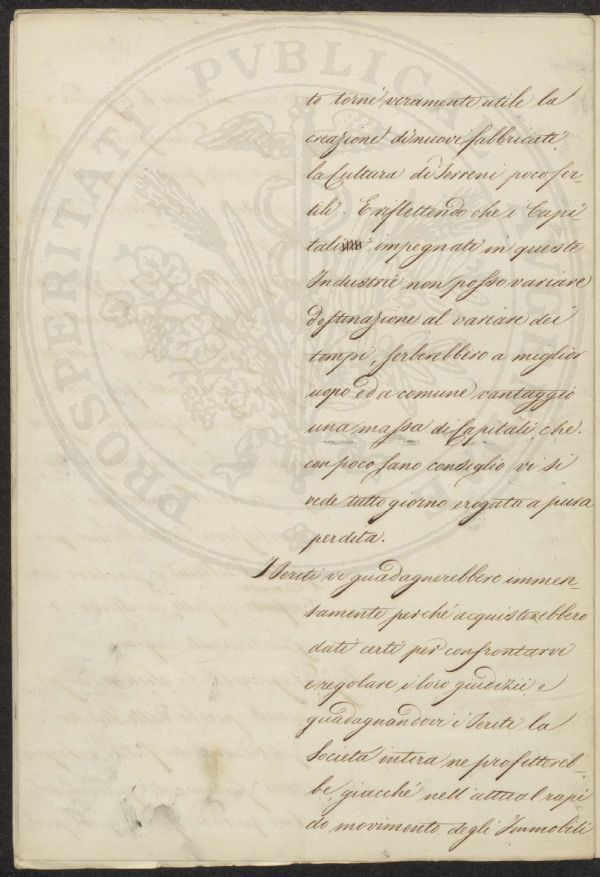 to torni veramente utile la
creazione di nuovi fabbricati,
la Cultura di Terreni poco fer-
tili. E riflettendo che i Capi-
tali impegnati in queste
Industrie non posso variare
destinazione al variare dei
tempi, serberebbero a miglior
uopo ed a comune vantaggio
una massa di Capitali, che.
con poco sano consiglio vi si
vede tutto giorno erogata a pura
perdita.
I Periti vi guadagnerebbero immen-
samente perché acquisterebbero
dati certi per confrontarvi
e regolare i loro giudizii e
guadagnandovi i Periti la
Società intera ne profitereb-
be giacché nell'attual rapi
do movimento degli Immobili
PROSPERITATI PVBLICAE